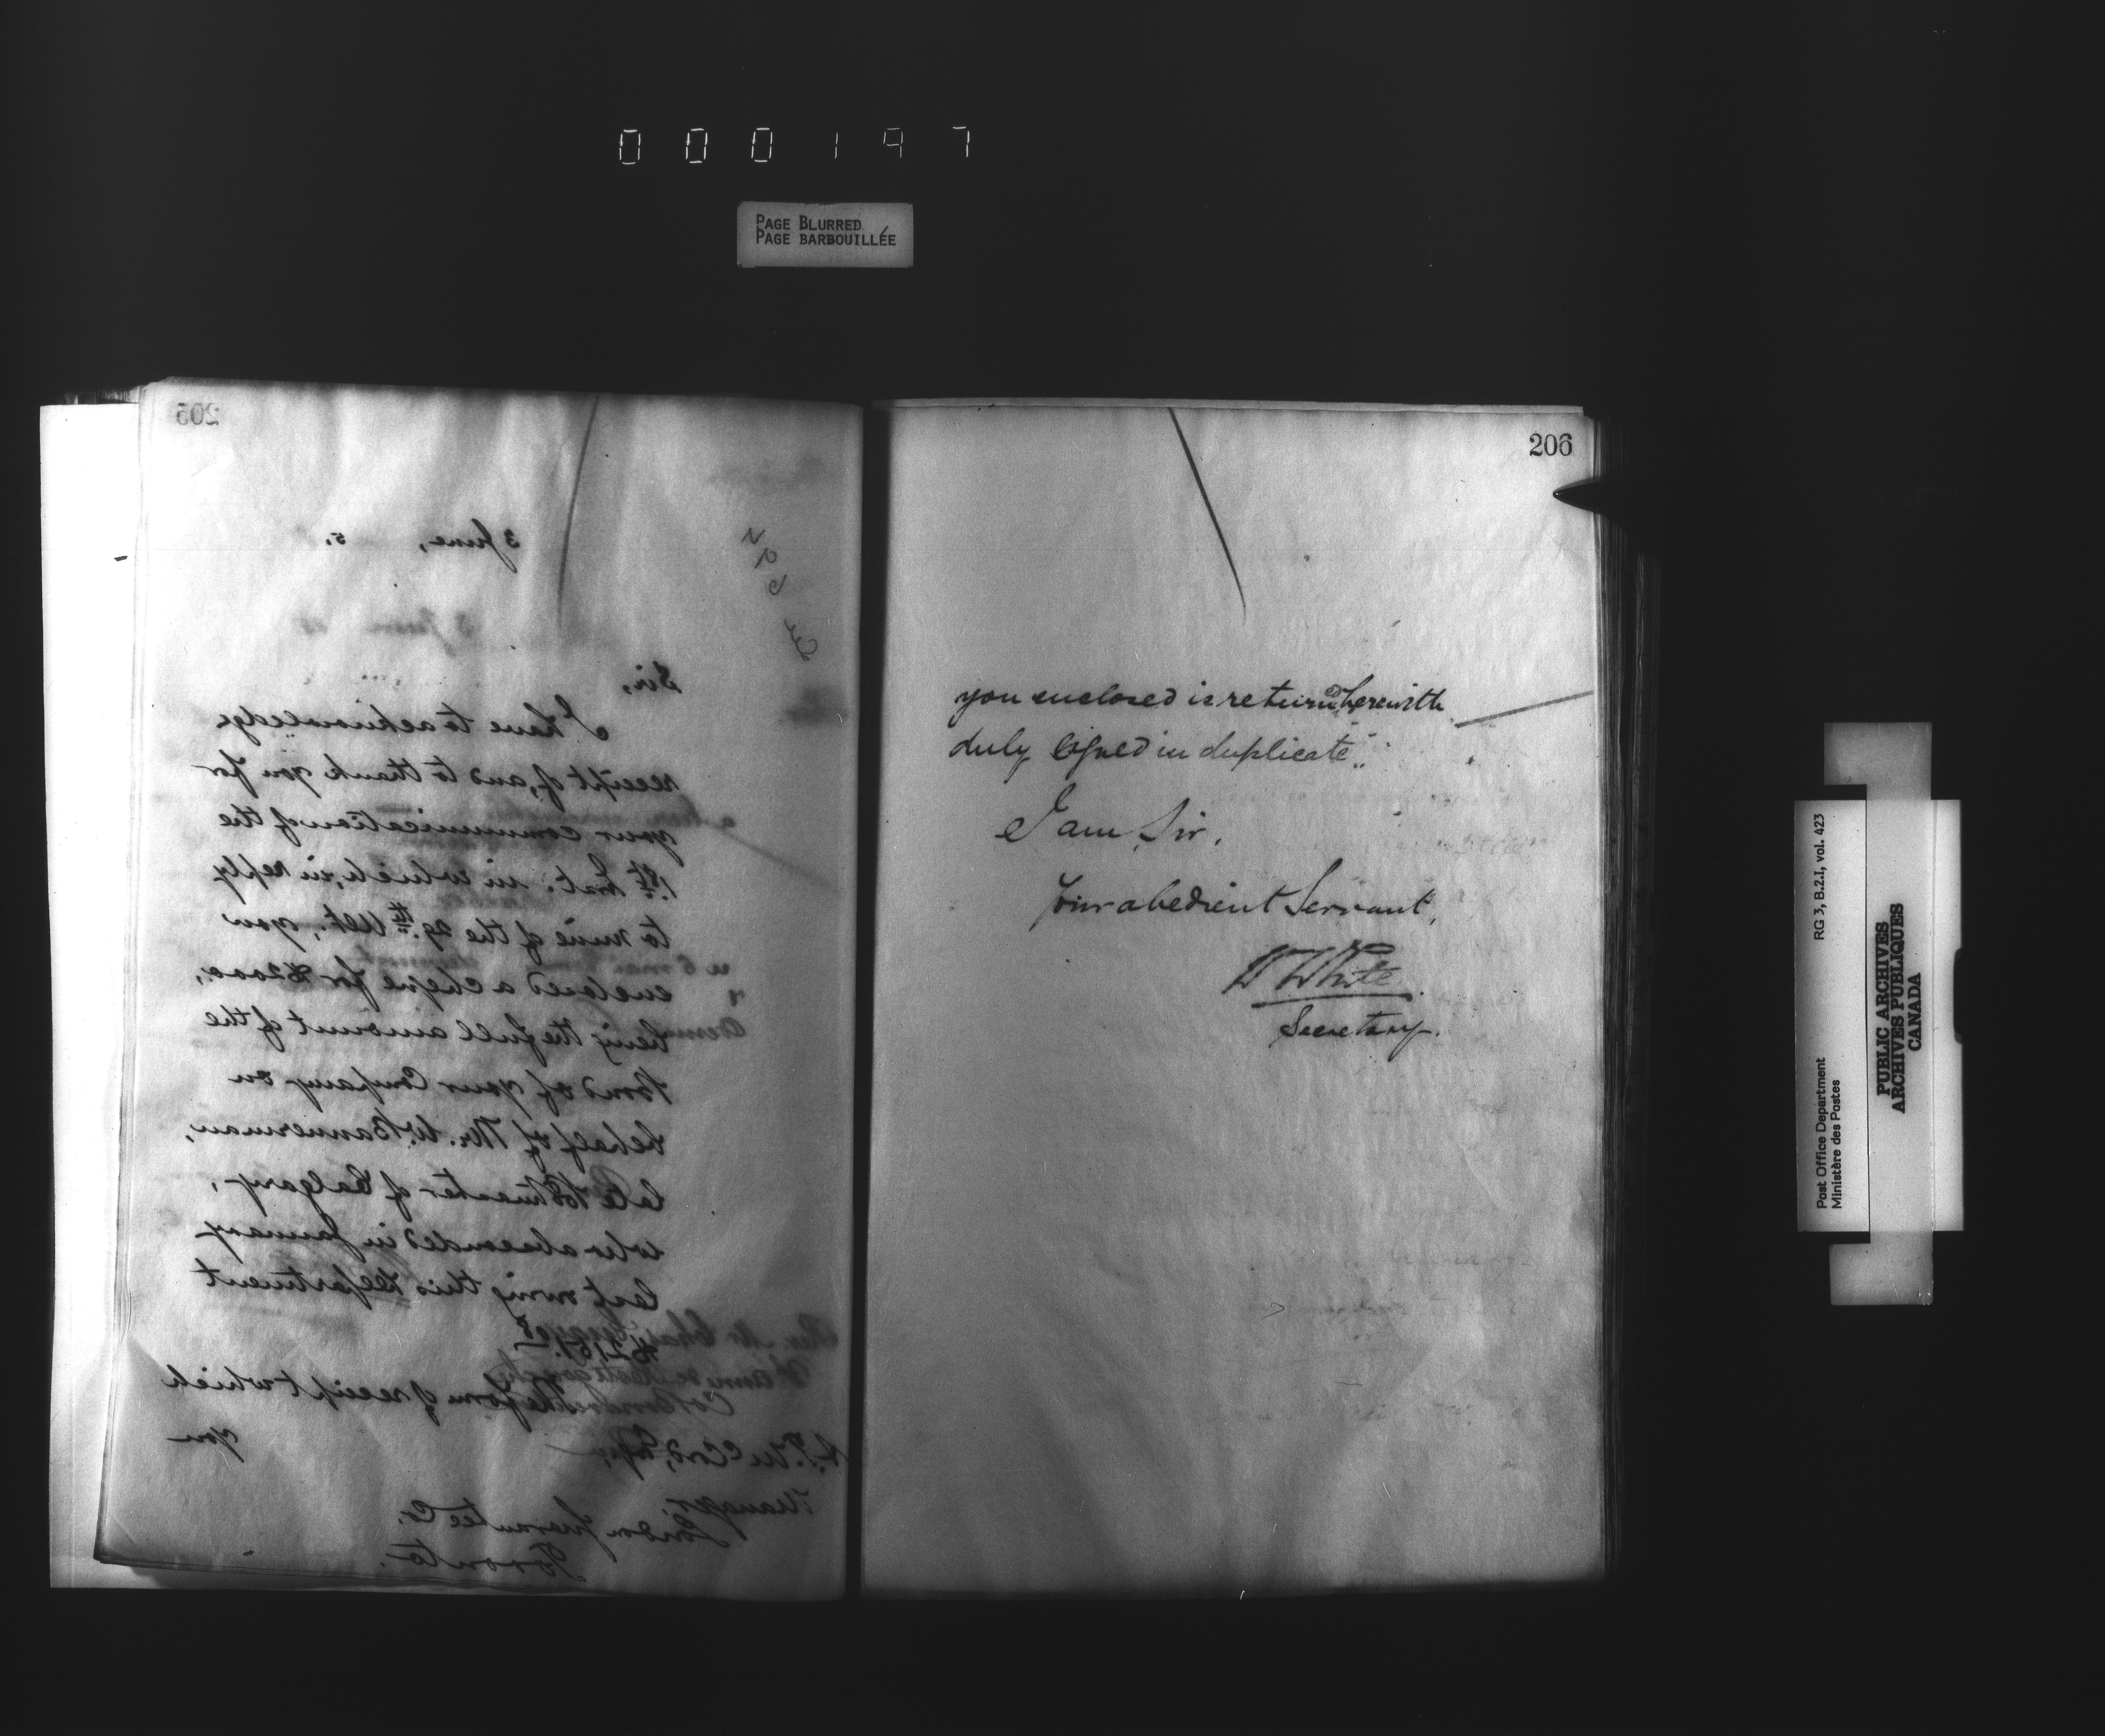 000197
PAGE BLURRED
PAGE BARBOUILLÉE
205
3 June, 5.
Sir,
I have to acknowledge
receipt of, and to thank you for
your communication of the
1st Inst. in which, in reply
to mine of the 29th Ult., you
enclosed a cheque for $2000,
being the full amount of the
Bond of your Company on
behalf of Mr. W. Bannerman,
late Postmaster of Calgary,
who absconded in January
last owing this Department
The form of receipt which
you
Manager,
London Guarantee Co.
Toronto.
206
you enclosed is returned herewith
duly signed in duplicate.
I am, Sir,
Your obedient Servant,
W White
Secretary.
Post Office Department
Ministère des Postes
RG 3, B.2.I, vol. 423
PUBLIC ARCHIVES
ARCHIVES PUBLIQUES
CANADA